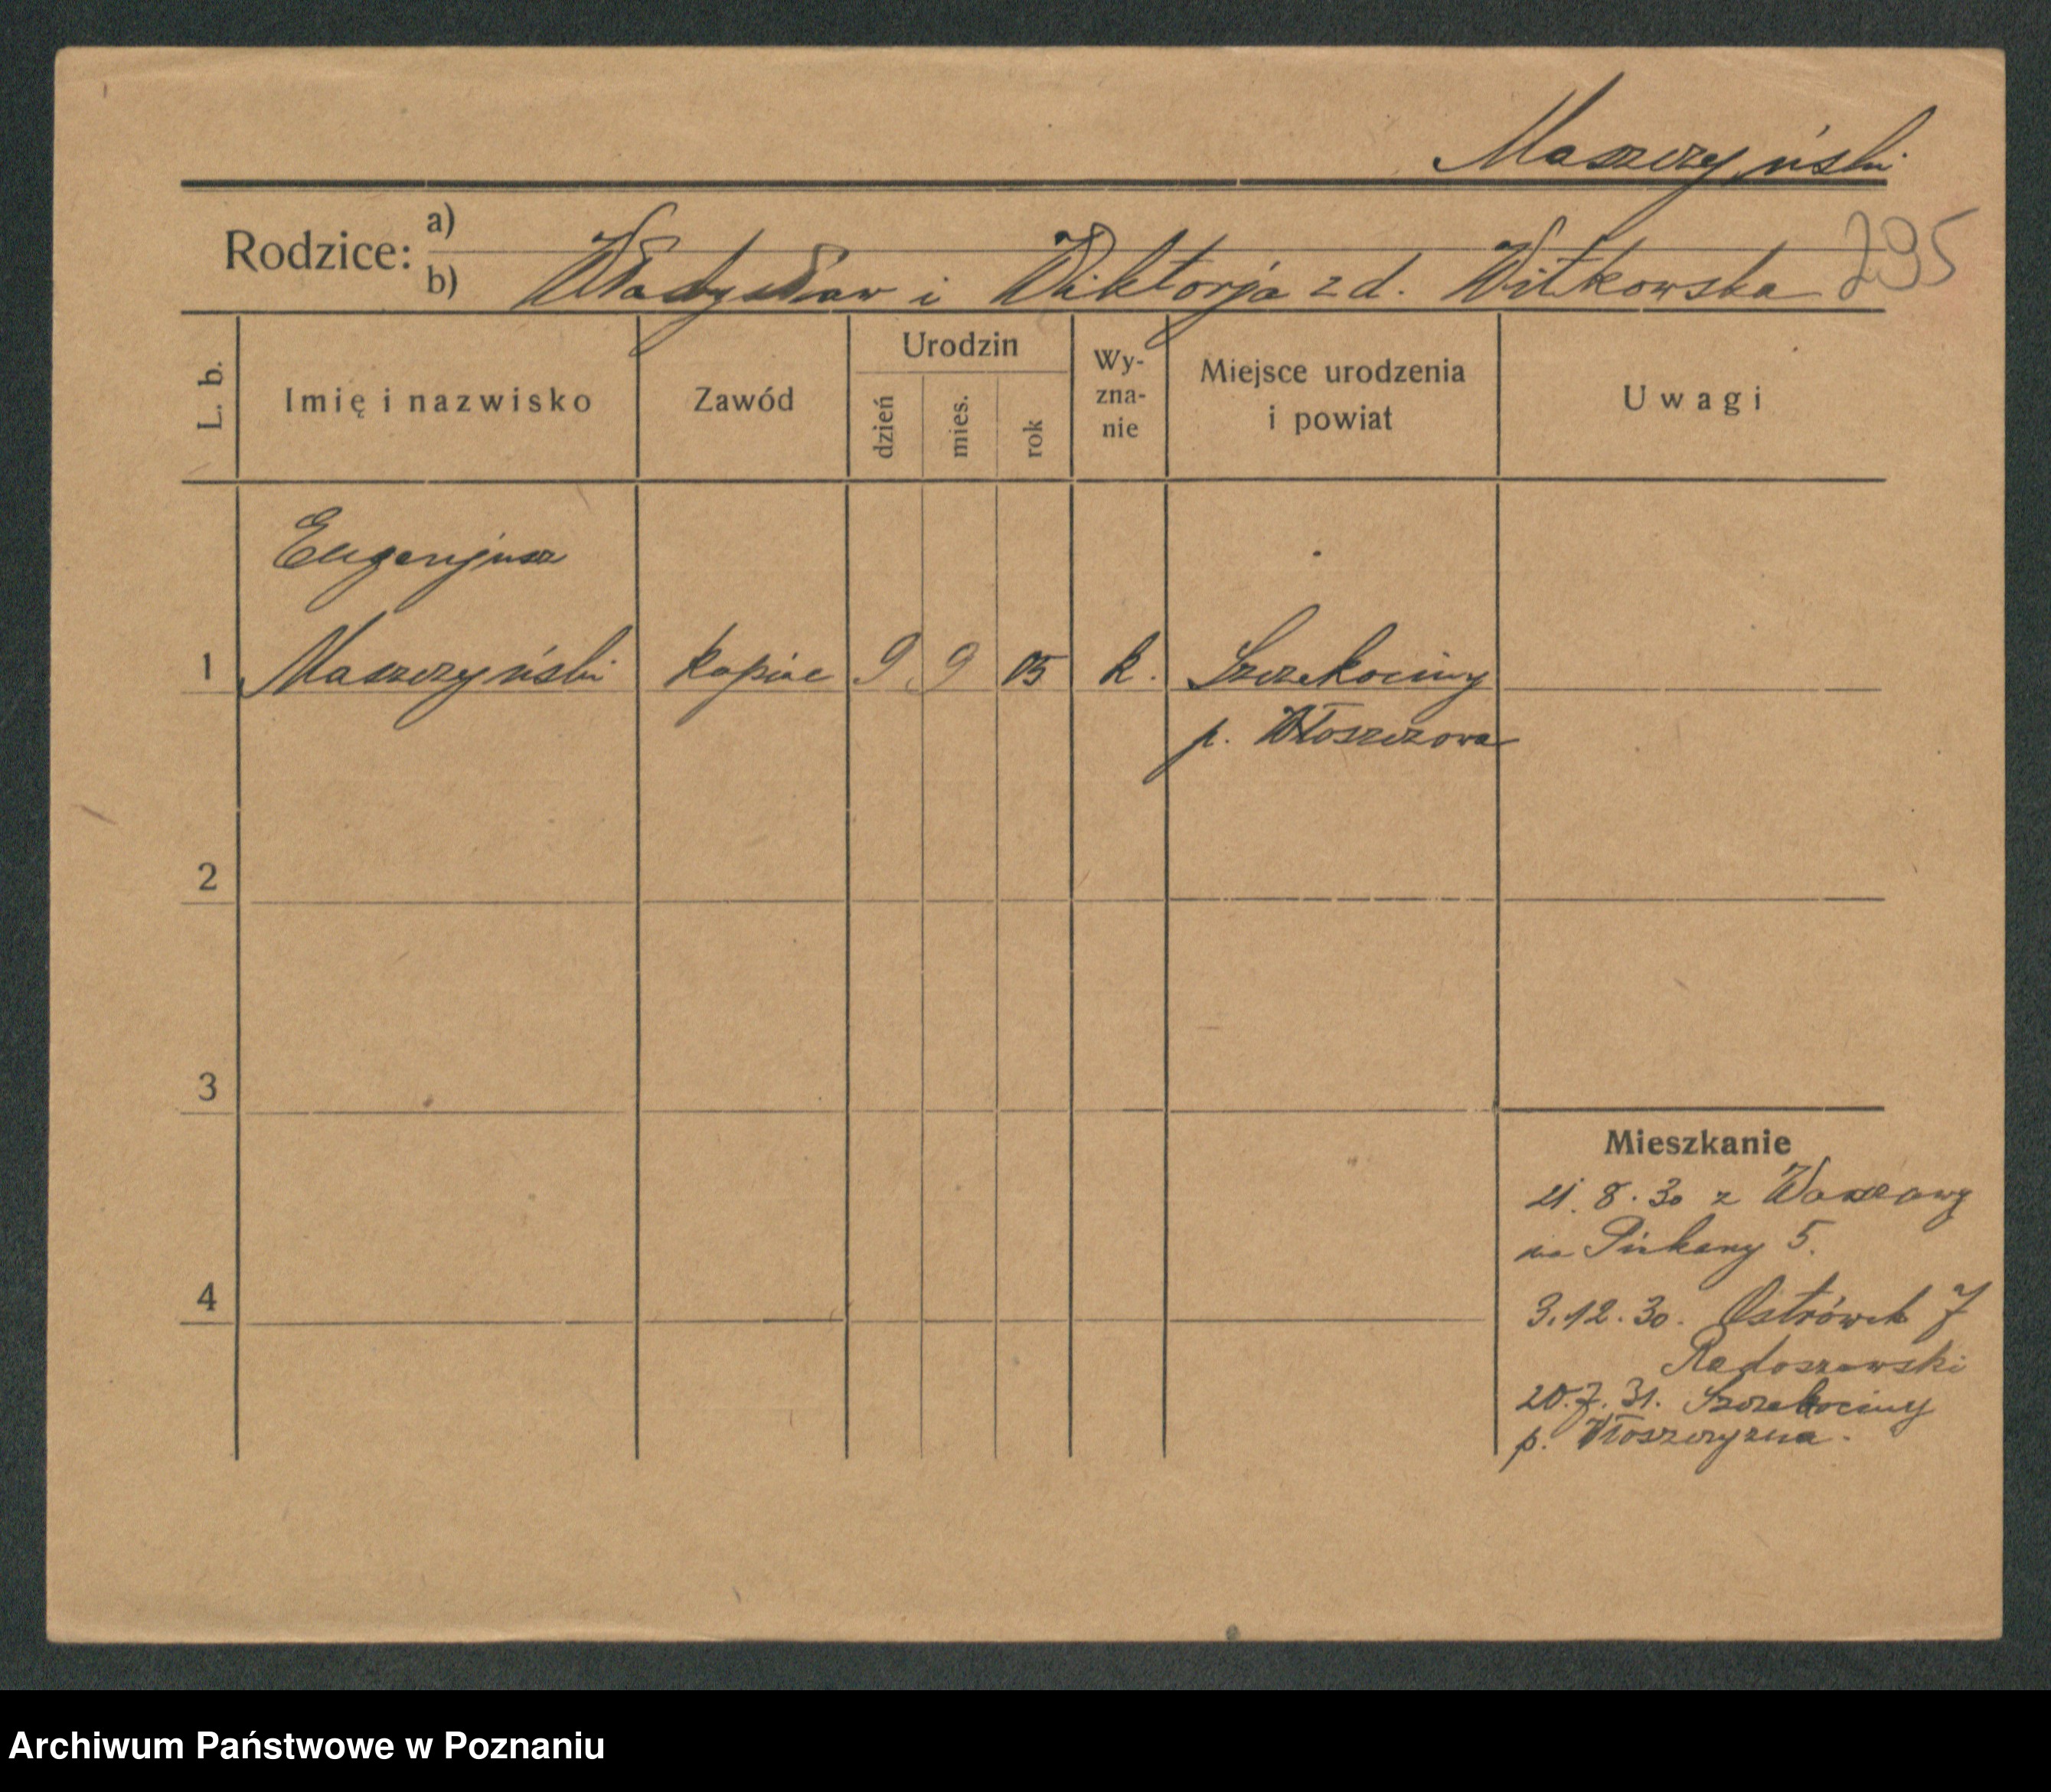 Maszczyński
Rodzice: a)
b) Władysław i Wiktorja z d. Witkowska 295
L. b. Imię i nazwisko Zawód Urodzin dzień mies. rok Wy-zna-nie Miejsce urodzenia i powiat Uwagi
Eugenjusz
1 Maszczyński kupiec 9 9 05 k. Szczekociny
p. Włoszczowa
2
3
Mieszkanie
21. 8. 30 z Warszawy
na Piekary 5.
4
3.12.30. Ostrówek 7
Radoszewski
20.7.31. Szczekociny
p.
Archiwum Państwowe w Poznaniu